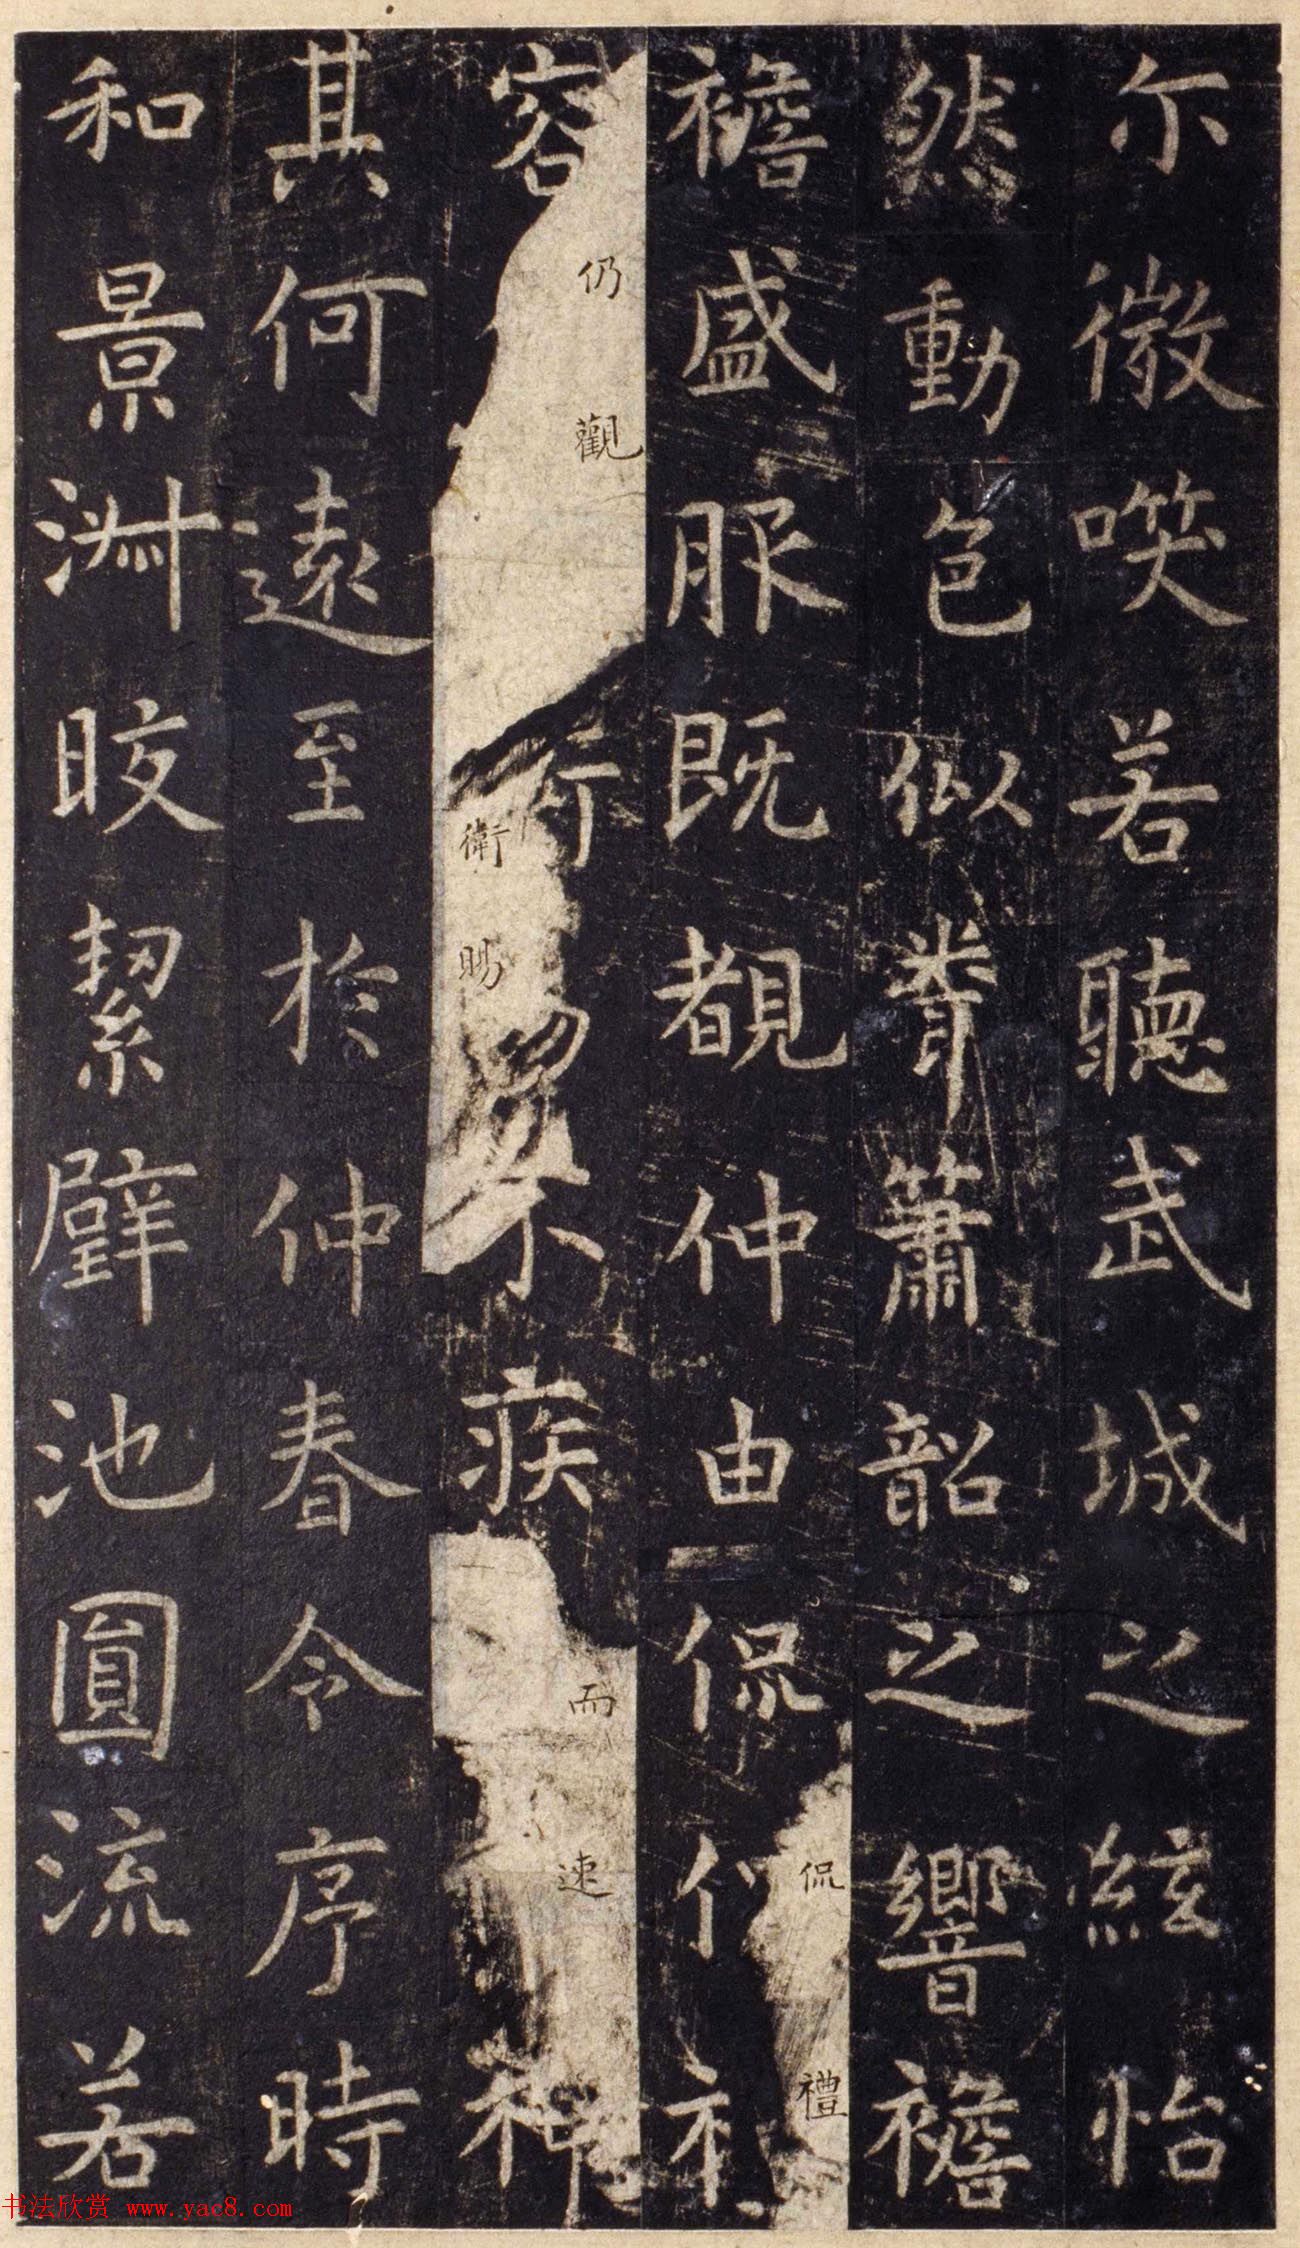 尓微㗛若聽武城之絃怡
然動色似聆簫韶之響襜
襜盛服既覩仲由侃侃禮
容仍觀衛賜不疾而速神
其何遠至於仲春令序時
和景淑晈絜璧池圓流若
书法欣赏 www.yac8.com